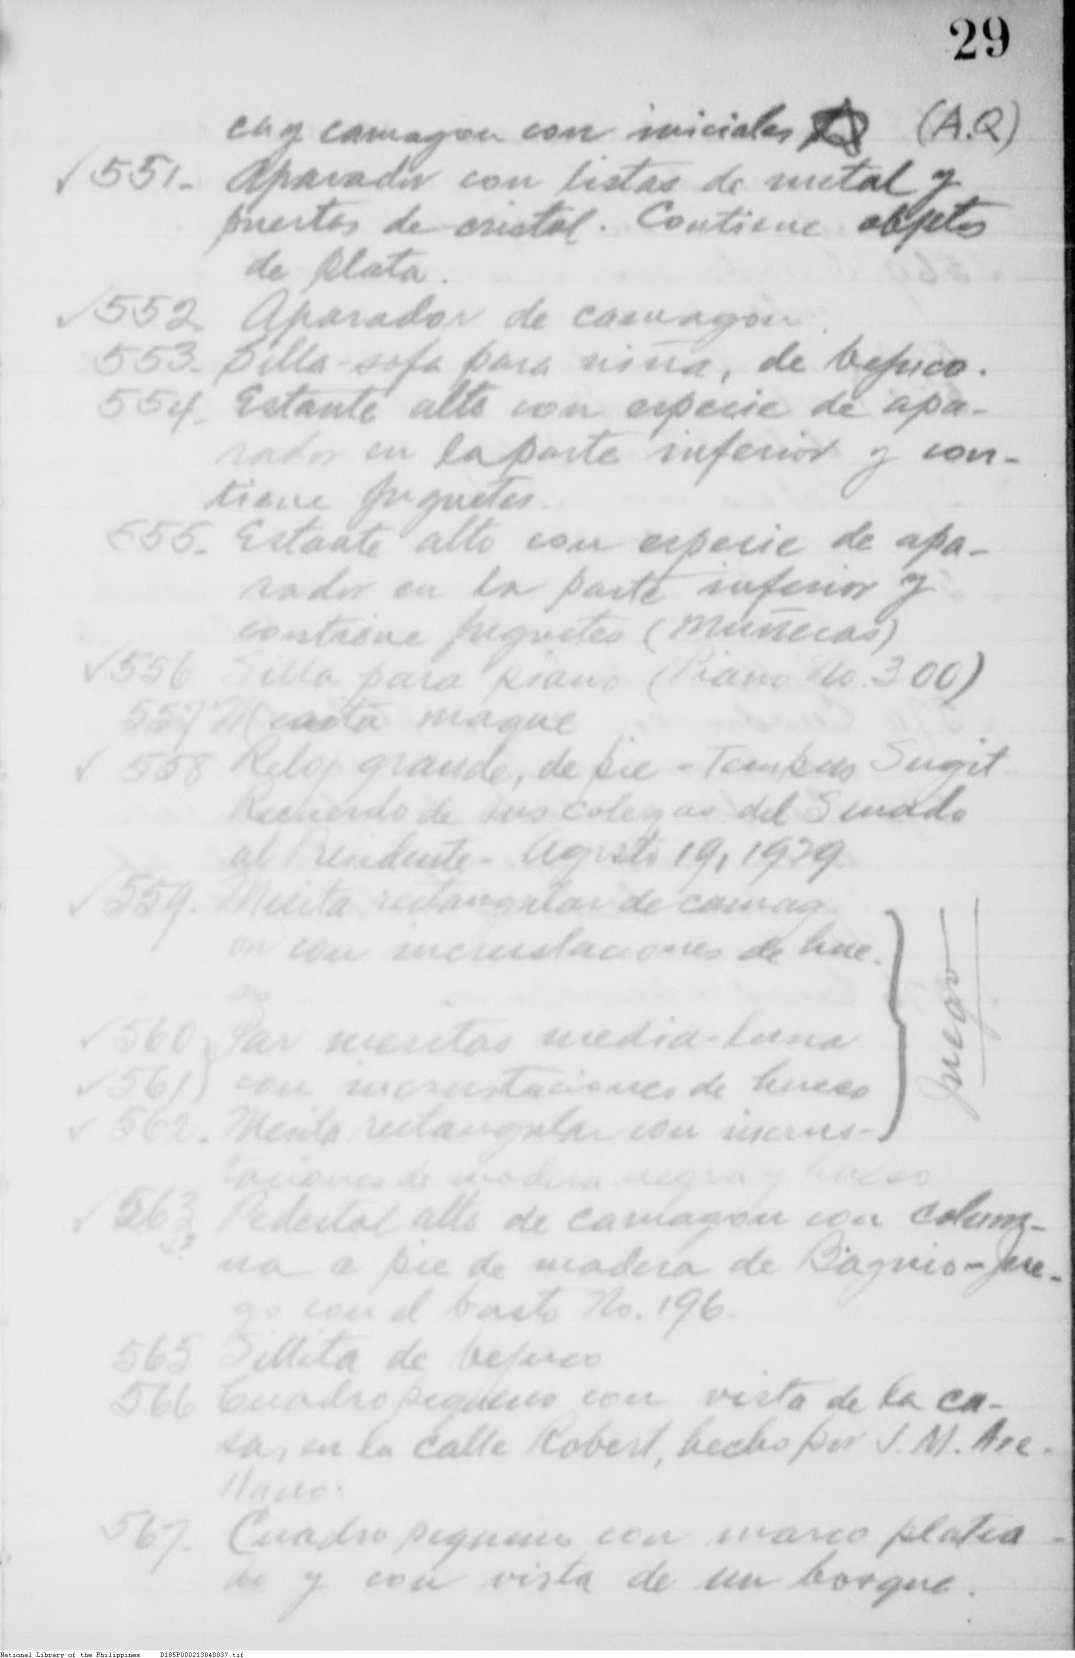 29
ca y camagon con iniciales (A.Q)
✓551. Aparador con listas de metal y
puertas de cristal. Contiene objetos
de plata.
✓552 Aparador de camagon.
553. Silla-sofa para niña, de bejuco.
554. Estante alto con especie de apa-
rador en la parte inferior y con-
tiene juguetes.
555. Estante alto con especie de apa-
rador en la parte inferior y
contiene juguetes (Muñecas)
✓556 Silla para piano (Piano No. 300)
557 maque
✓ 558 Reloj grande, de pie - Tempus Fugit
Recuerdo de sus colegas del Senado
al Presidente - Agosto 19, 1929
✓559. Mesita rectangular de camag
on con incrustaciones de hue-
so
✓560) Par mesitas media-luna
✓561) con incrustaciones de hueso
✓ 562. Mesita rectangular con incrus-
taciones de madera negra y hueso
Juego
✓ 563 Pedestal alto de camagon con colum-
na a pie de madera de Baguio - Jue-
go con el busto No. 196.
565 Sillita de bejuco
566 Cuadro pequeno con vista de la ca-
sa, en la calle Robert, hecho por J. M. Are-
llano.
567. Cuadro pequeno con marco platea-
do y con vista de un bosque.
National Library of the Philippines D185P000213040037.tif